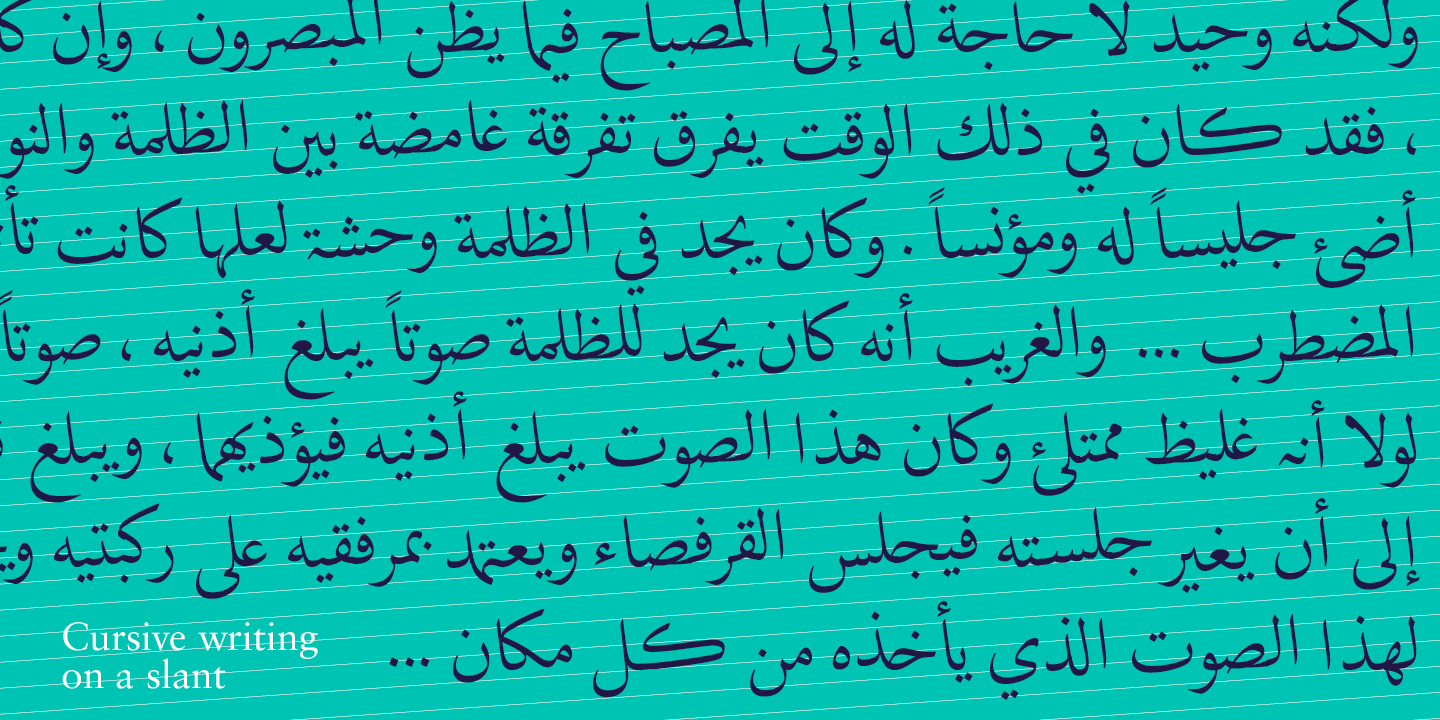 ولكنه وحيد لا حاجة له إلى المصباح فيما يظن المبصرون ، وإن
، فقد كان في ذلك الوقت يفرق تفرقة غامضة بين الظلمة والنو
أضئ جليساً له ومؤنساً . وكان يجد في الظلمة وحشة لعلها كانت
المضطرب ... والغريب أنه كان يجد للظلمة صوتاً يبلغ أذنيه ، صوتاً
لولا أنه غليظ ممتلئ وكان هذا الصوت يبلغ أذنيه فيؤذيهما ، ويبلغ
إلى أن يغير جلسته فيجلس القرفصاء ويعتمد بمرفقيه على ركبتيه
لهذا الصوت الذي يأخذه من كل مكان ...
Cursive writing
on a slant